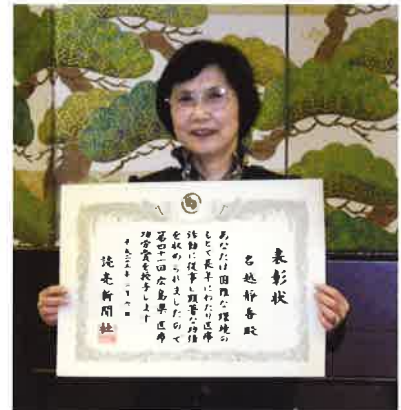 表彰状
名越静香殿
あなたは困難な環境の
もとで長年にわたり医療
活動に従事し顕著な功績
を収められましたので
第四十一回広島県医療
功労賞を授与します
平成二十五年二月六日
読売新聞社